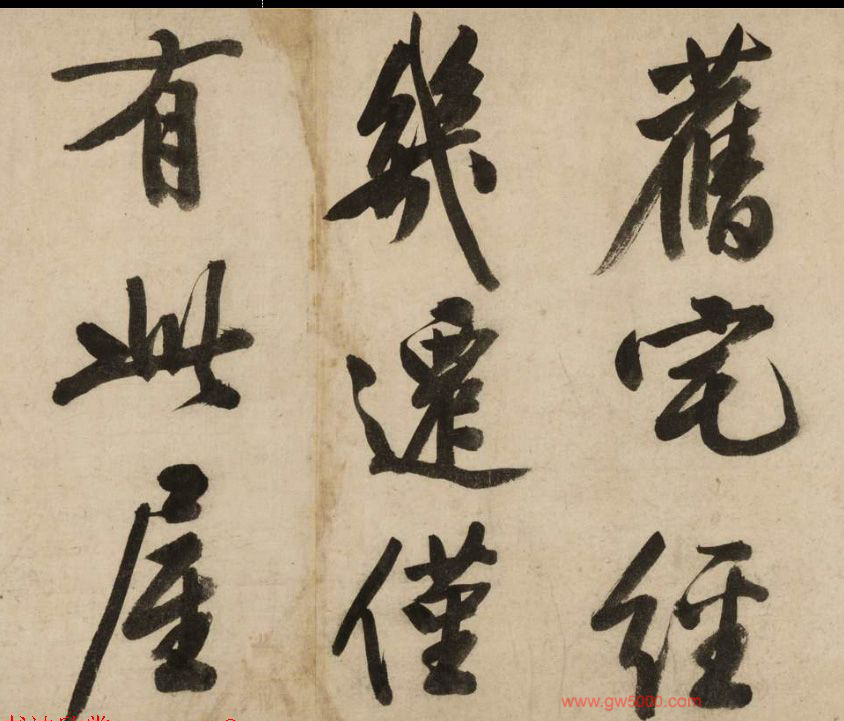 舊宅經
幾遷僅
有此屋
www.gw5000.com